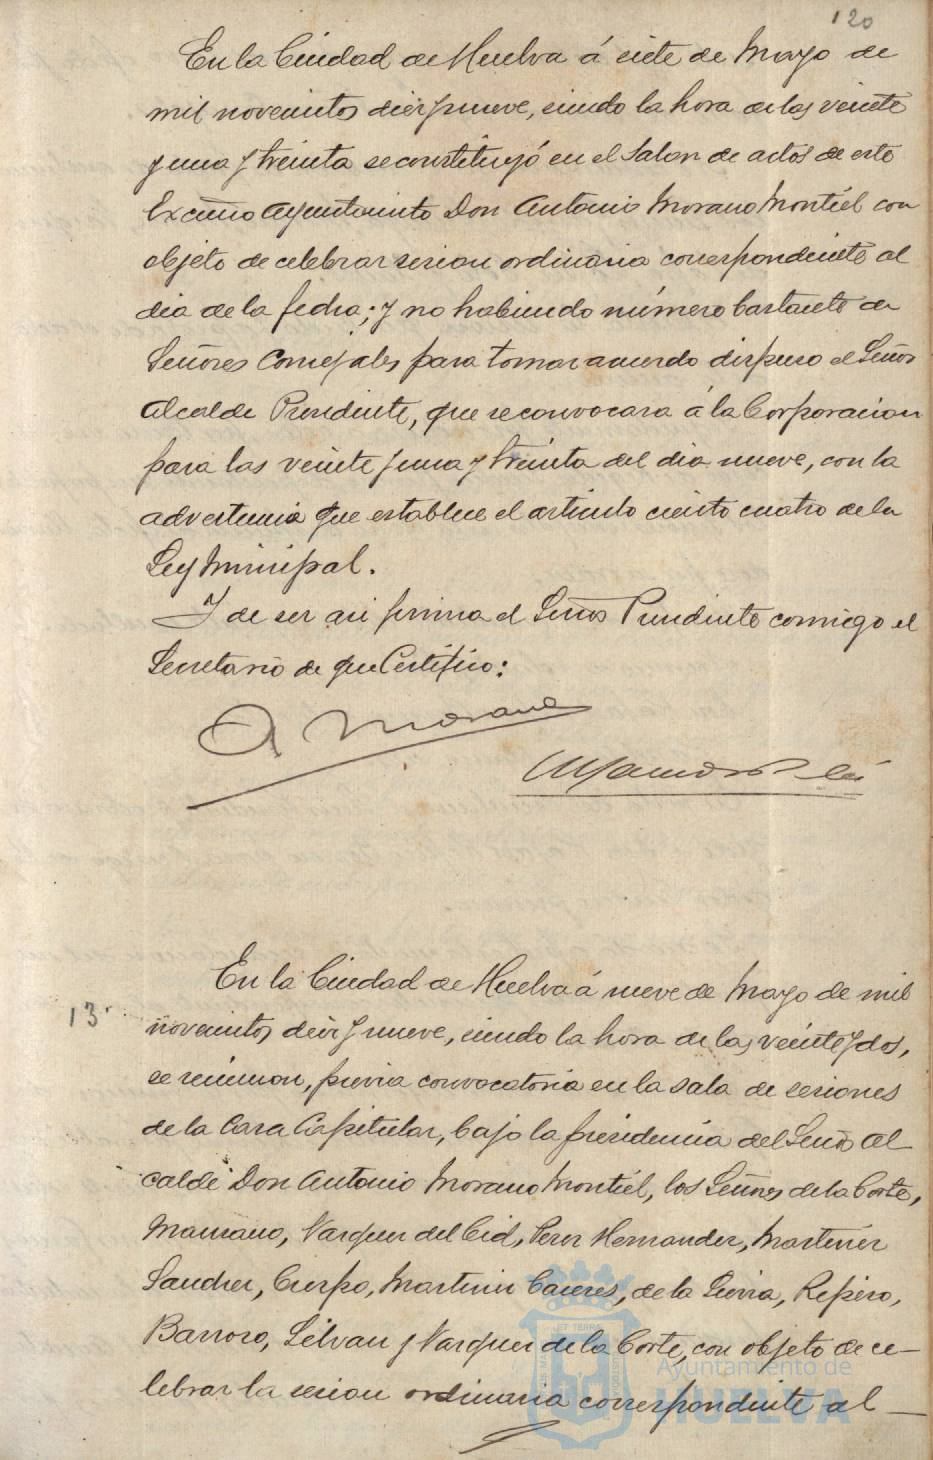 120
En la Ciudad de Huelva á siete de Mayo de
mil novecientos diez y nueve, siendo la hora de las veinte
y una y treinta se constituyó en el Salon de actos de este
Excmo Ayuntamiento Don Antonio Morano Montiel con
objeto de celebrar sesion ordinaria correspondiente al
dia de la fecha; y no habiendo número bastante de
Señores Concejales para tomar acuerdo dispuso el Señor
Alcalde Presidente, que se convocara á la Corporacion
para las veinte y una y treinta del dia nueve, con la
advertencia que establece el articulo ciento cuatro de la
Ley Municipal.
Y de ser asi firma el Señor Presidente conmigo el
Secretario de que Certifico:
A Morano
13
En la Ciudad de Huelva á nueve de Mayo de mil
novecientos diez y nueve, siendo la hora de las veinte y dos,
se reunieron, previa convocatoria en la sala de sesiones
de la Casa Capitular, bajo la presidencia del Señor Al
calde Don Antonio Morano Montiel, los Señores de la Corte,
Manzano, Vazquez del Cid, Perez Hernandez, Martinez
Sanchez, Crespo, Martin Caceres, de la Sierra, Repiso,
Barroso, Silvan y Vazquez de la Corte, con objeto de ce-
lebrar la sesion ordinaria correspondiente al
Ayuntamiento de
HUELVA